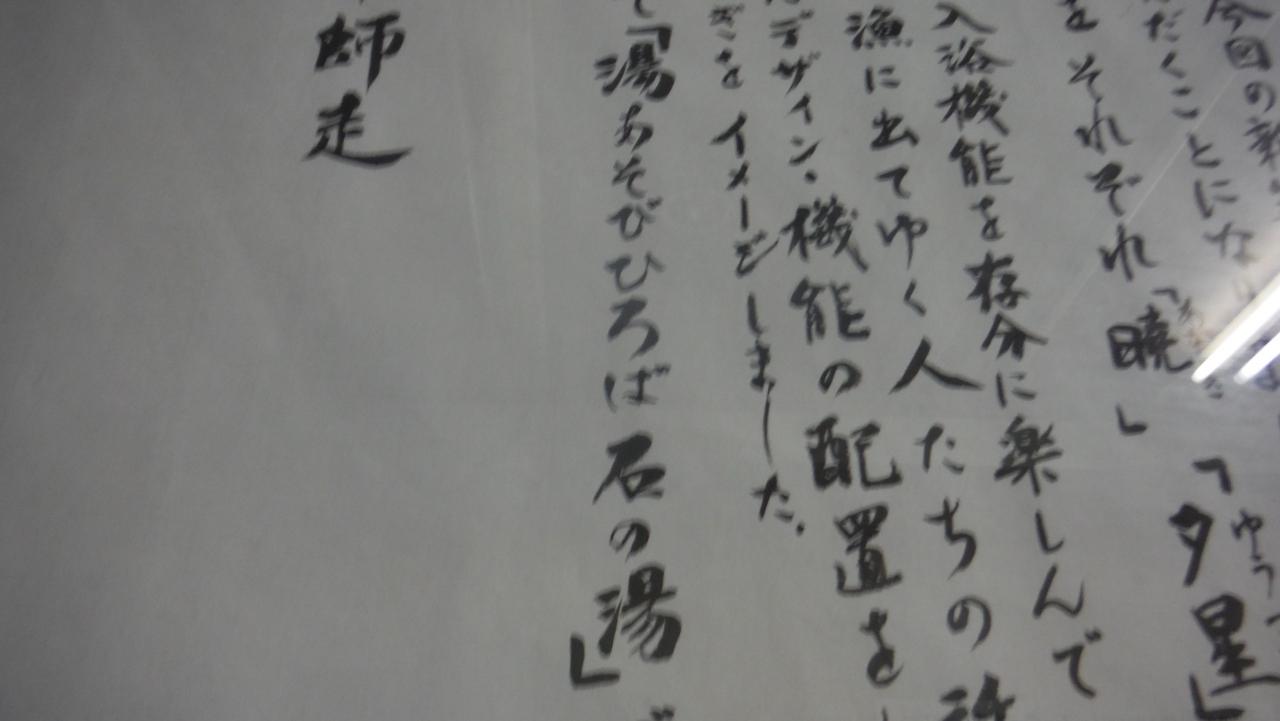 今回の新
だくことにな
「夕星」
ゆう
をそれぞれ「暁」
入浴機能を存分に楽しんで
漁に出てゆく人たちの
デザイン、機能の配置を
ぎをイメージしました。
て「湯あそびひろば石の湯」
師走